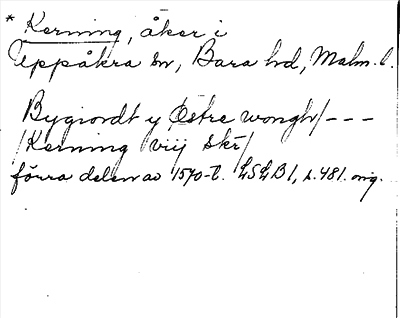 * Kerning, åker i
Uppåkra sn, Bara hd, Malm. l.
Bygiordt y Østre wongh/ - - -
/Kerning viij skr/
förra delen av 1570-t. LSLB 1, s. 481. orig.